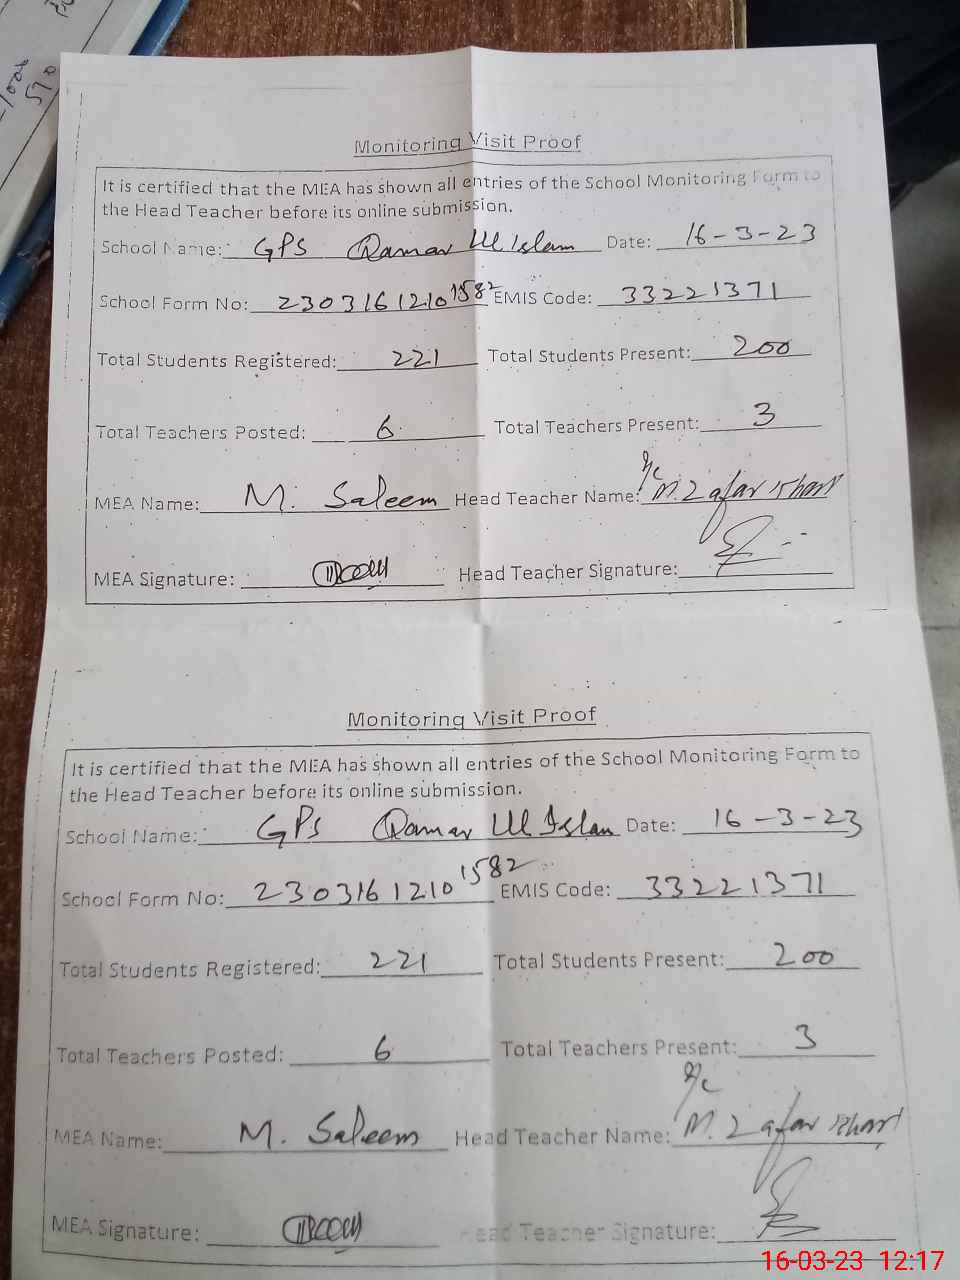 1006
510
Monitoring Visit Proof
It is certified that the MEA has shown all entries of the School Monitoring Form to
the Head Teacher before its online submission.
School Name: GPS Qamar Ul Islam Date: 16-3-23
School Form No: 2303161210 1582 EMIS Code: 33221371
Total Students Registered: 221 Total Students Present: 200
Total Teachers Posted: 6 Total Teachers Present: 3
MEA Name: M. Saleem Head Teacher Name: I/c M. Zafar Khan
MEA Signature: Head Teacher Signature:
Monitoring Visit Proof
It is certified that the MEA has shown all entries of the School Monitoring Form to
the Head Teacher before its online submission.
School Name: GPS Qamar Ul Islam Date: 16-3-23
School Form No: 2303161210 1582 EMIS Code: 33221371
Total Students Registered: 221 Total Students Present: 200
Total Teachers Posted: 6 Total Teachers Present: 3
MEA Name: M. Saleem Head Teacher Name: I/c M. Zafar Khan
MEA Signature: Head Teacher Signature:
16-03-23 12:17